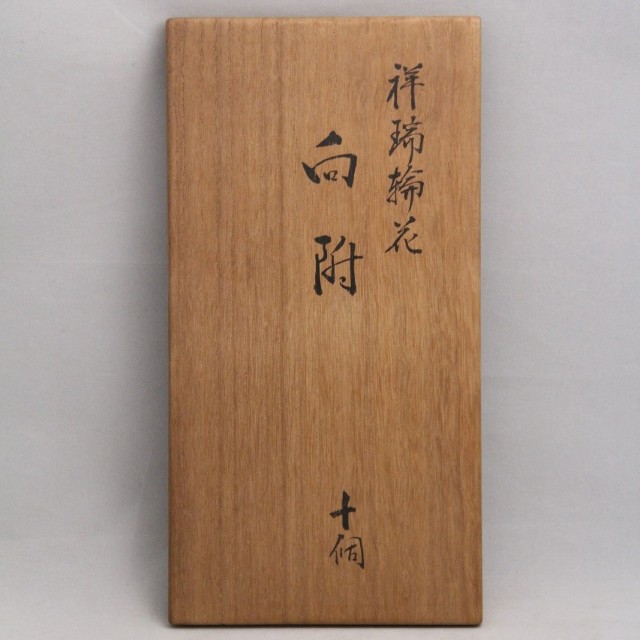 祥瑞輪花
向附
十個